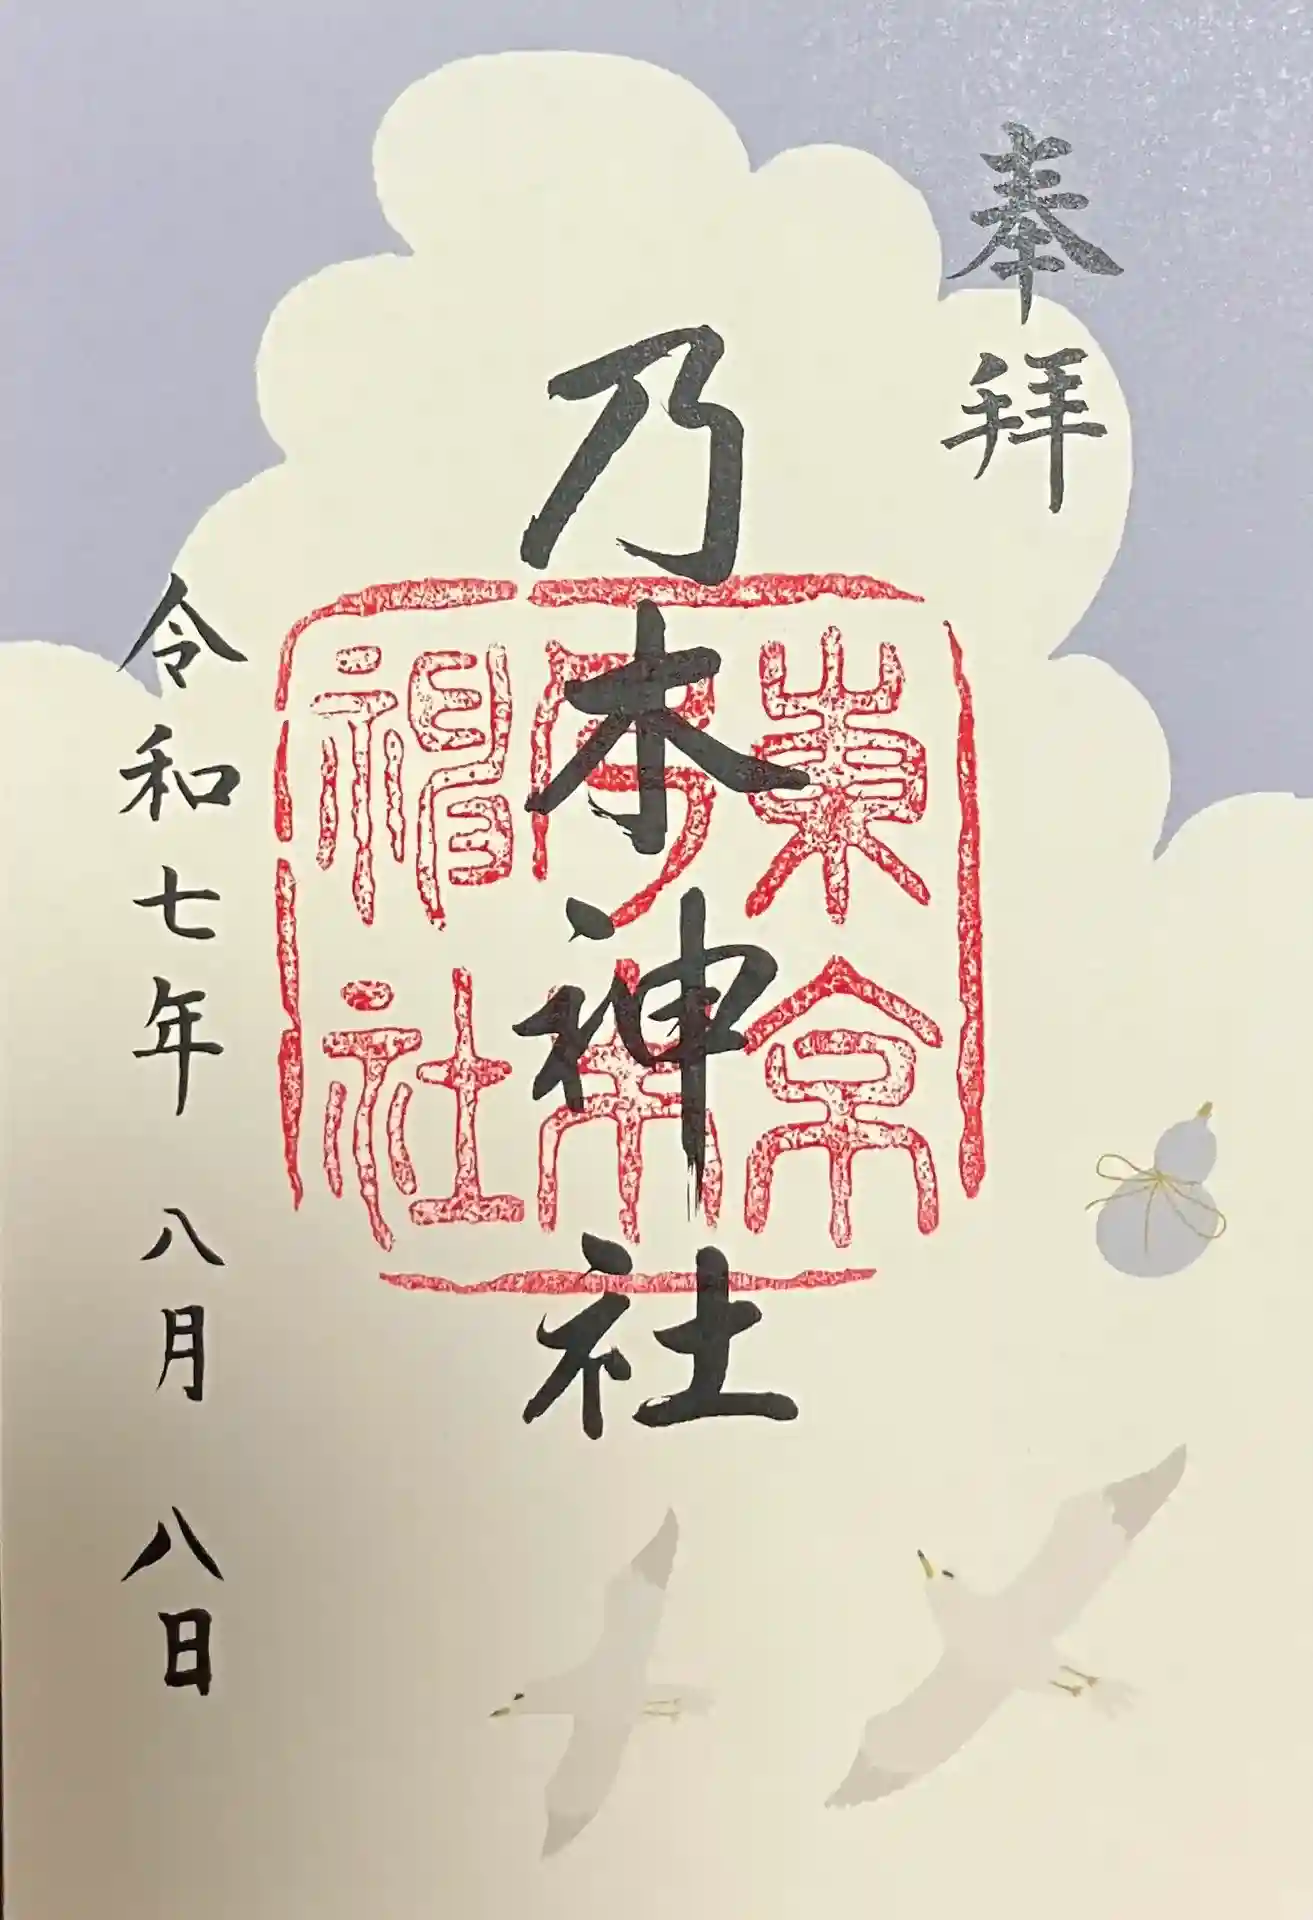 奉拝
乃木神社
東京
乃木
神社
令和七年 八月 八日